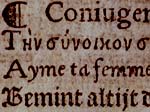 C Coniugem
Τὴν σύνοικον σ
Ayme ta femme
Bemint altijt d